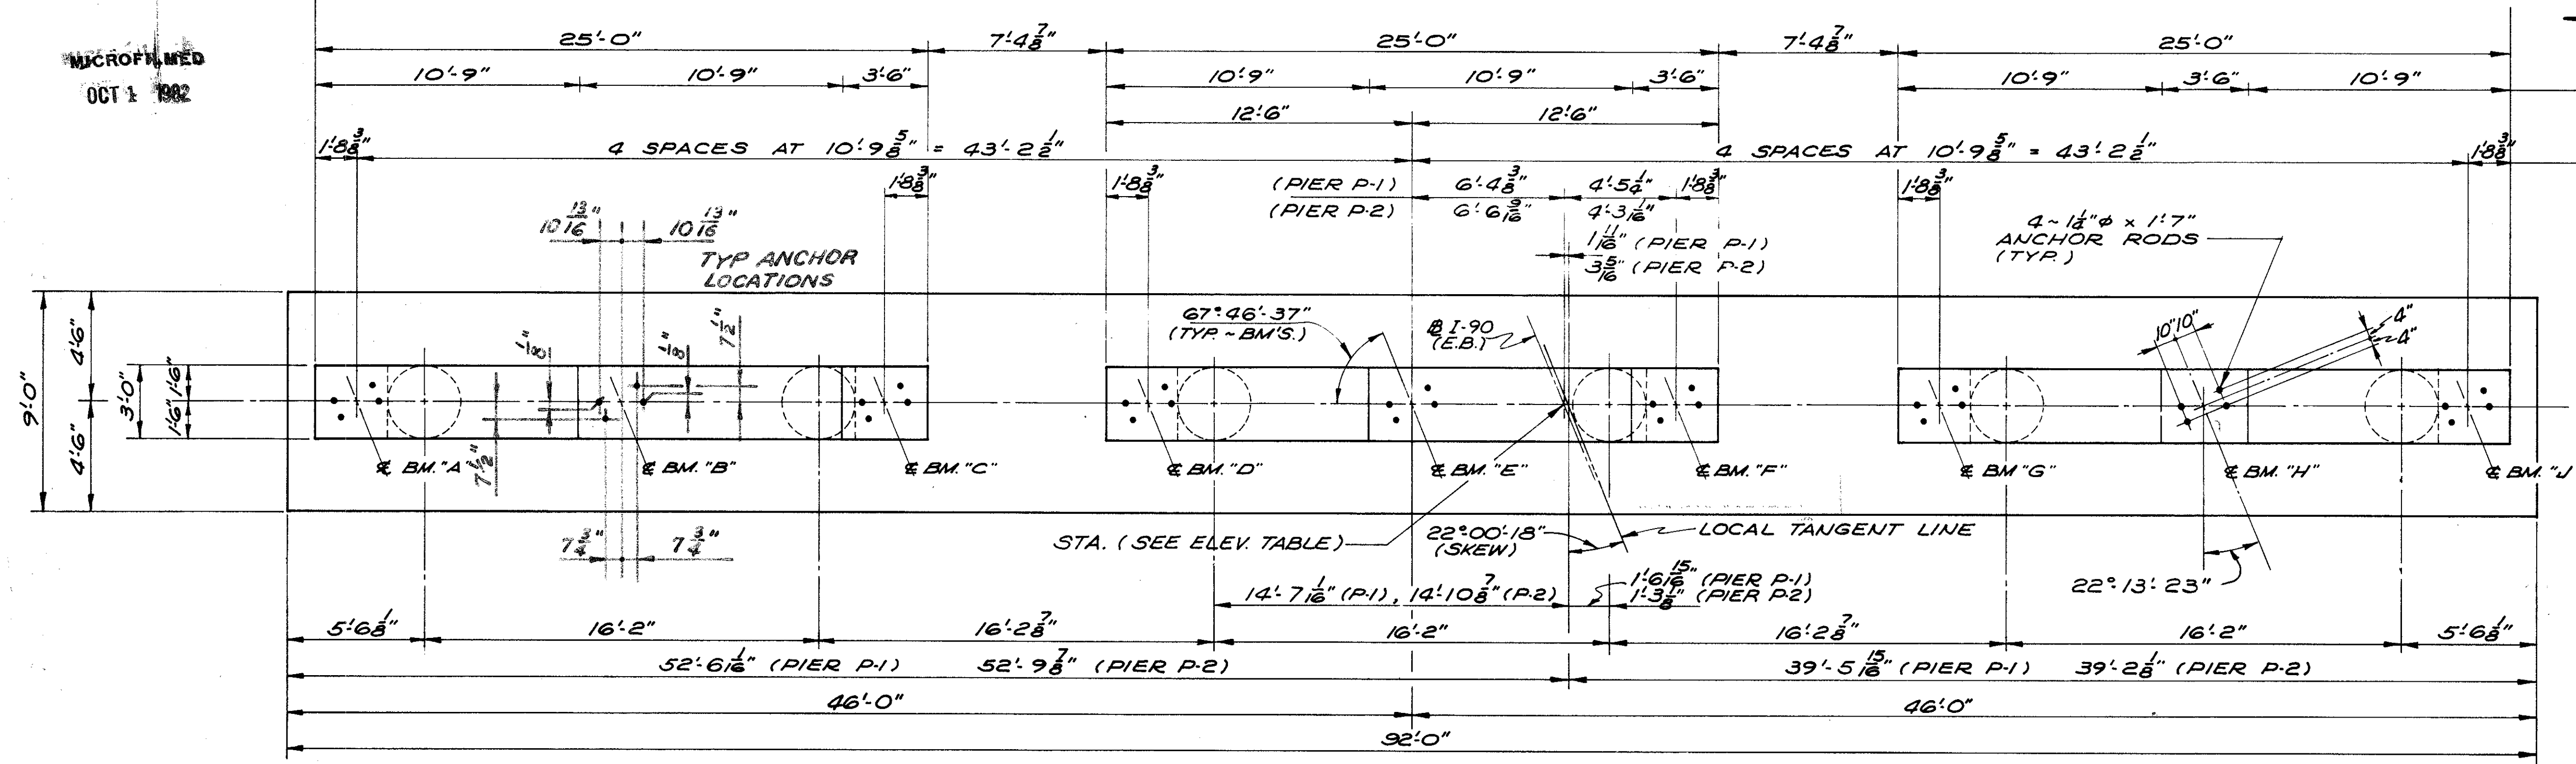 MICROFILMED
OCT 1 1982
25'-0" 7'-4 7/8" 25'-0" 7'-4 7/8" 25'-0"
10'-9" 10'-9" 3'-6" 10'-9" 10'-9" 3'-6" 10'-9" 3'-6" 10'-9"
12'-6" 12'-6"
1'-8 3/8" 4 SPACES AT 10'-9 5/8" = 43'-2 1/2" 4 SPACES AT 10'-9 5/8" = 43'-2 1/2" 1'-8 3/8"
1'-8 3/8" 1'-8 3/8" (PIER P-1) 6'-4 3/8" 4'-5 1/4" 1'-8 3/8" 1'-8 3/8"
(PIER P-2) 6'-6 9/16" 4'-3 1/16"
10 13/16" 10 13/16"
4~1 1/4"φ x 1'-7"
ANCHOR RODS
(TYP.)
1 11/16" (PIER P-1)
3 5/16" (PIER P-2)
TYP ANCHOR
LOCATIONS
67°-46'-37"
(TYP. ~ BM'S.)
℄ I-90
(E.B.)
10" 10" 4"
4"
9'-0" 4'-6" 4'-6" 3'-0" 1'-6" 1'-6"
1/8" 1/8" 7 1/2"
7 1/2"
℄ BM. "A" ℄ BM. "B" ℄ BM. "C" ℄ BM. "D" ℄ BM. "E" ℄ BM. "F" ℄ BM "G" ℄ BM. "H" ℄ BM. "J
7 3/4" 7 3/4"
STA. (SEE ELEV. TABLE) 22°-00'-18" LOCAL TANGENT LINE
(SKEW)
22°-13'-23"
14'-7 1/16" (P-1), 14'-10 7/8" (P-2) 1'-6 15/16" (PIER P-1)
1'-3 1/8" (PIER P-2)
5'-6 1/8" 16'-2" 16'-2 7/8" 16'-2" 16'-2 7/8" 16'-2" 5'-6 1/8"
52'-6 1/16" (PIER P-1) 52'-9 7/8" (PIER P-2) 39'-5 15/16" (PIER P-1) 39'-2 1/8" (PIER P-2)
46'-0" 46'-0"
92'-0"